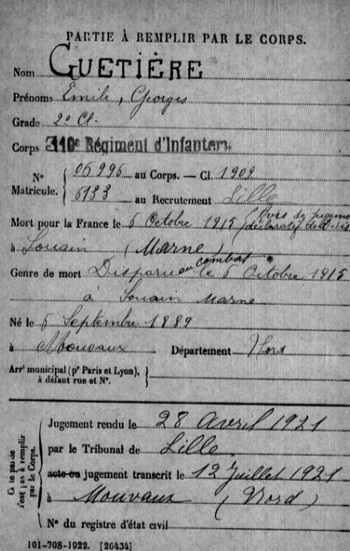 PARTIE À REMPLIR PAR LE CORPS.
Nom GUETIÈRE
Prénoms Emile, Georges
Grade 2e Cl.
Corps 110e Régiment d'Infanterie
N° 06996 au Corps. — Cl. 1909
Matricule. 6133 au Recrutement Lille
Mort pour la France le 6 Octobre 1915
à Souain (Marne)
Genre de mort Disparu au combat le 6 Octobre 1915
à Souain Marne
Né le 6 Septembre 1889
à Mouvaux Département Nord
Arrt municipal (pr Paris et Lyon),
à défaut rue et N°.
Jugement rendu le 28 Avril 1921
par le Tribunal de Lille
acte ou jugement transcrit le 12 Juillet 1921
à Mouvaux (Nord)
N° du registre d'état civil
Cette partie n'est pas à remplir par le Corps.
101-708-1922. [26434]